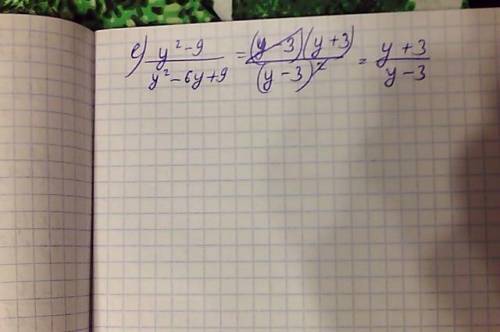 е) (y² - 9)/(y² - 6y + 9) = ((y - 3)(y + 3))/((y - 3)²) = (y + 3)/(y - 3)